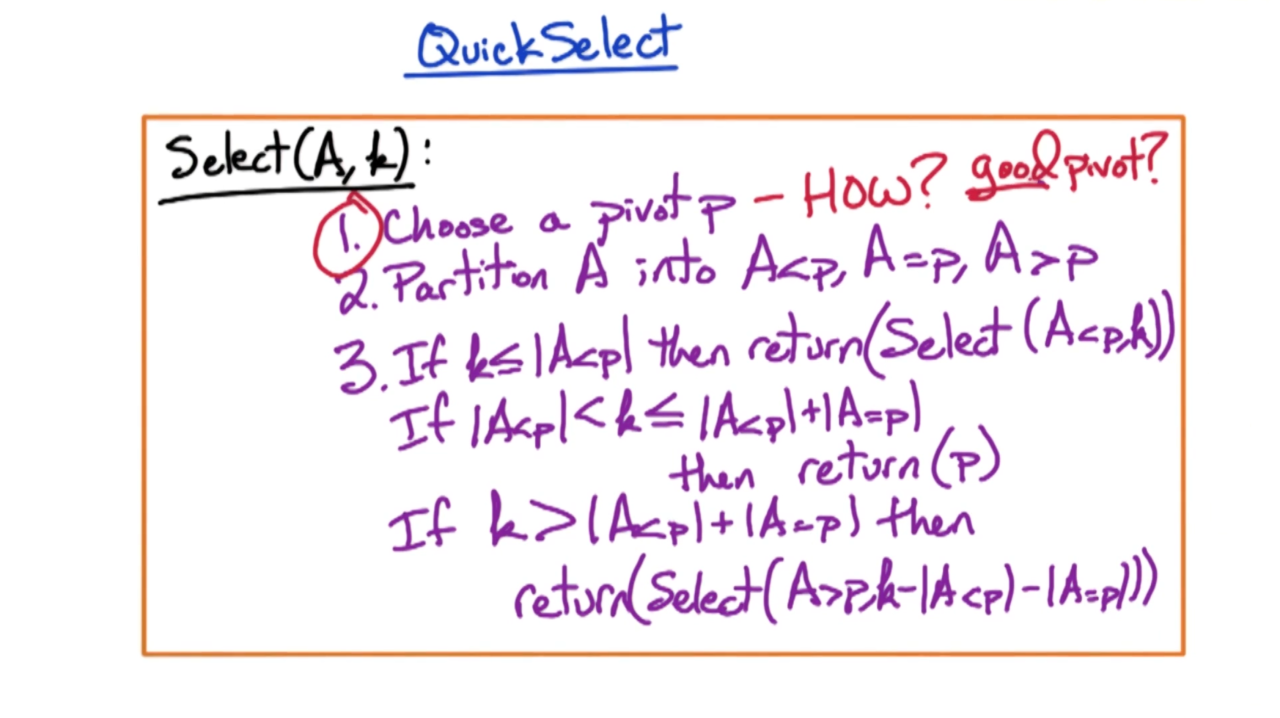 QuickSelect
Select(A, k):
1. Choose a pivot p - HOW? good pivot?
2. Partition A into A<p, A=p, A>p
3. If k≤|A<p| then return(Select(A<p,k))
If |A<p|<k≤|A<p|+|A=p|
then return(p)
If k>|A<p|+|A=p| then
return(Select(A>p,k-|A<p|-|A=p|)))